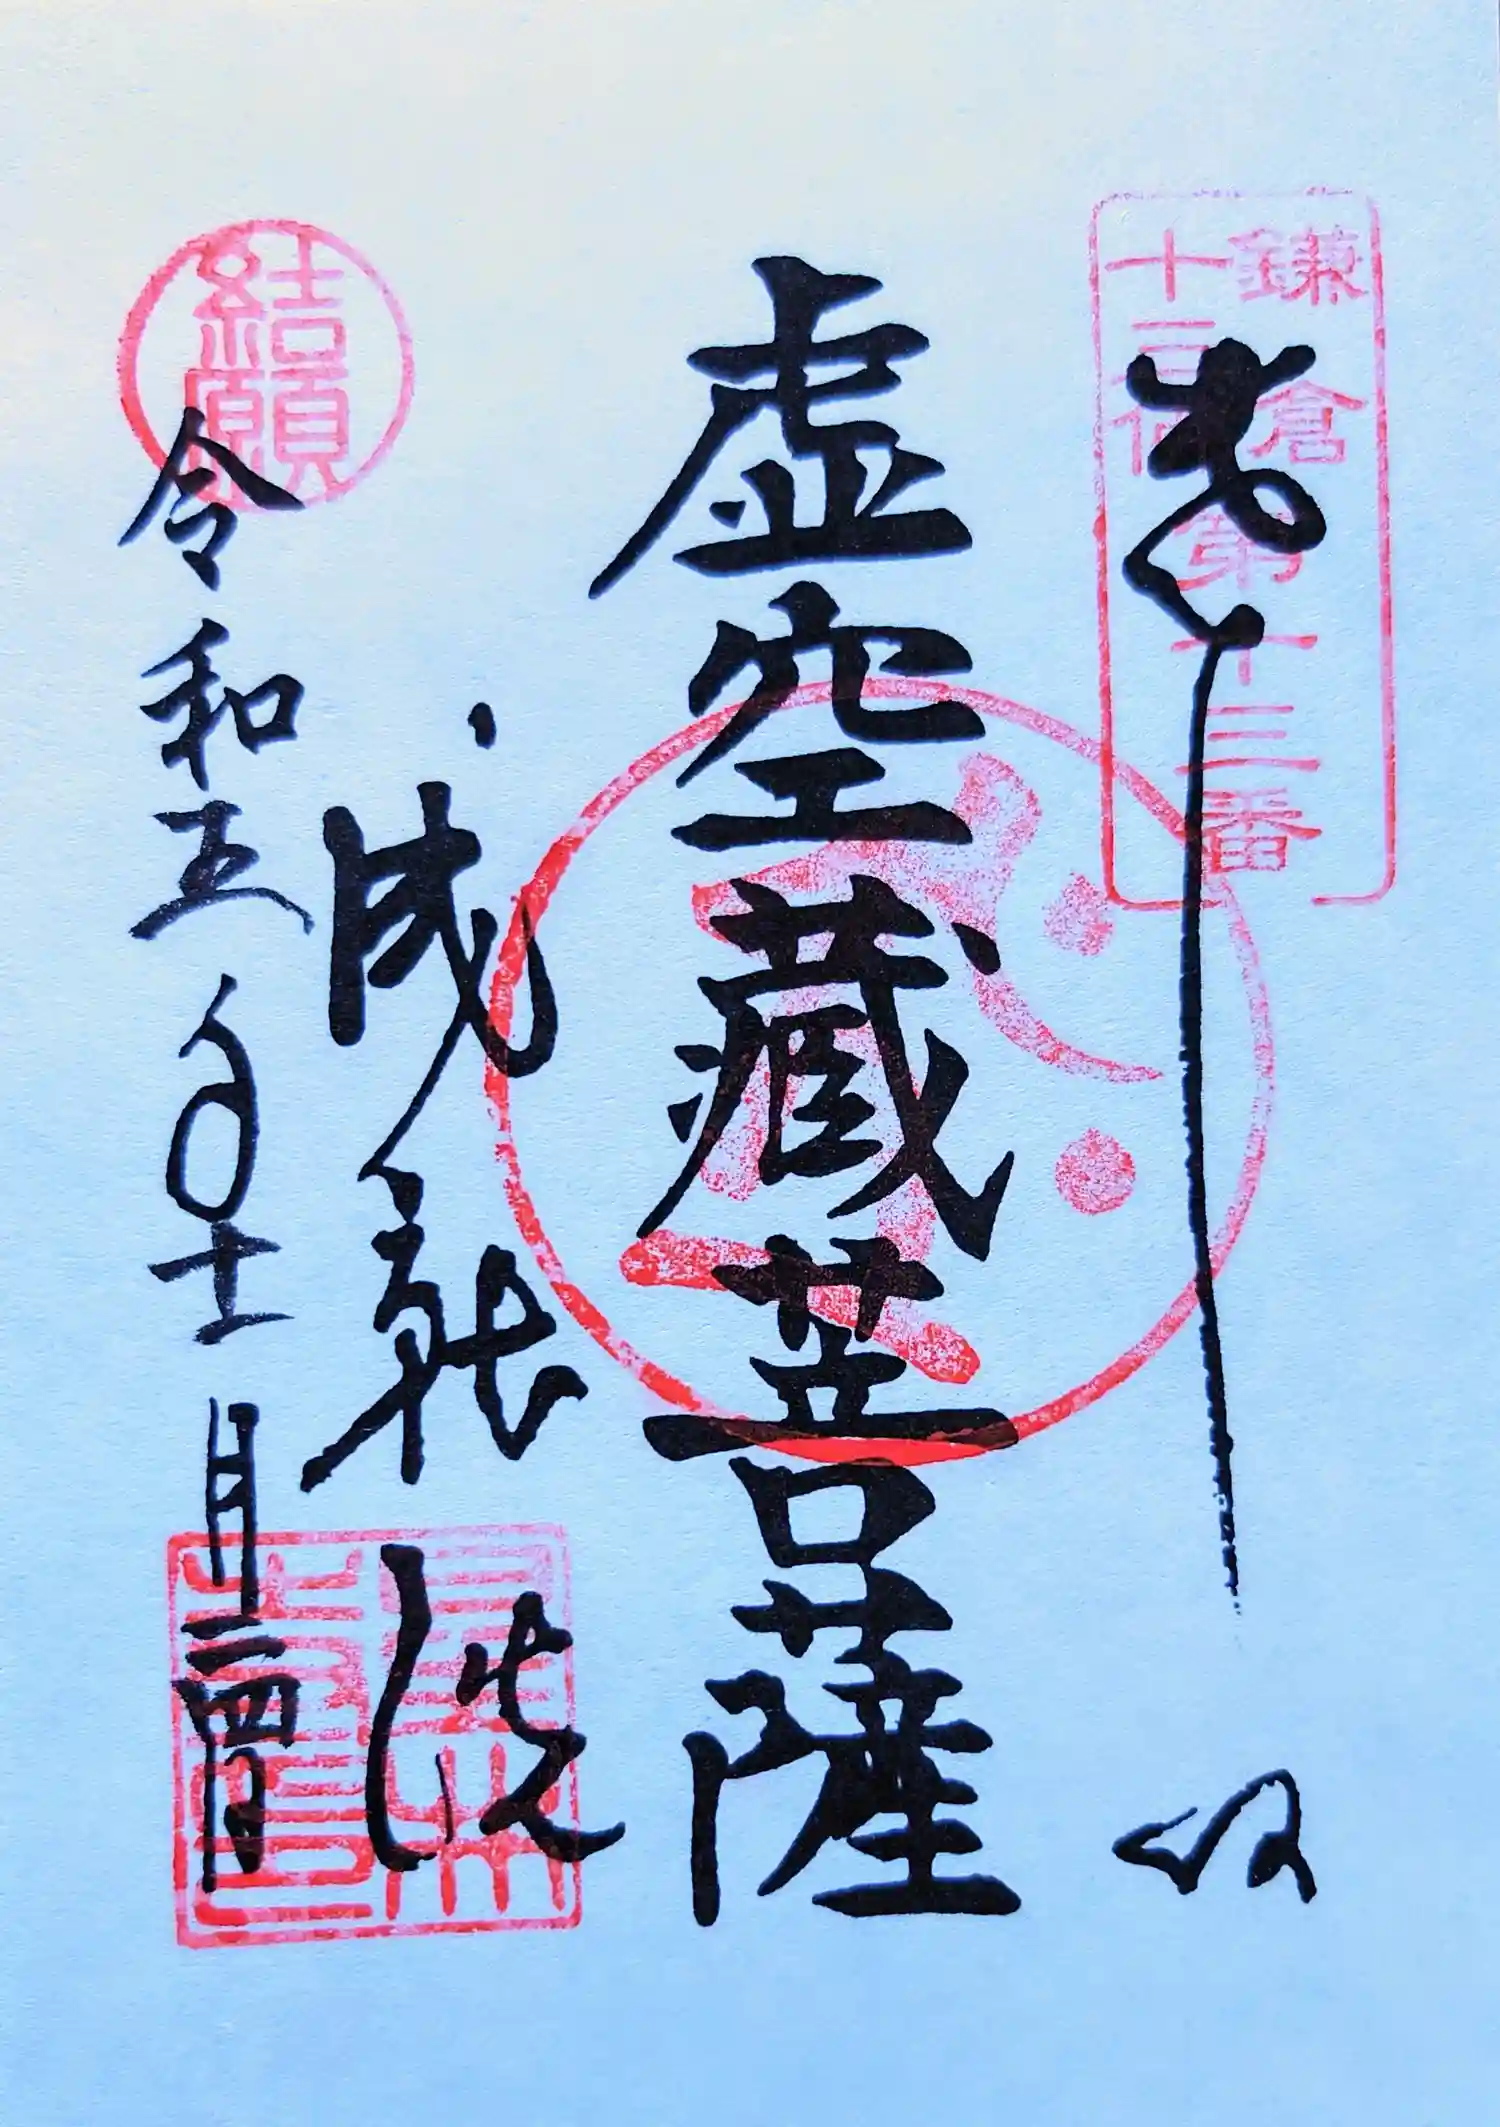 鎌倉
十三佛
第十三番
奉拝
虚空藏菩薩
成就院
結願
令和五年十二月二四日